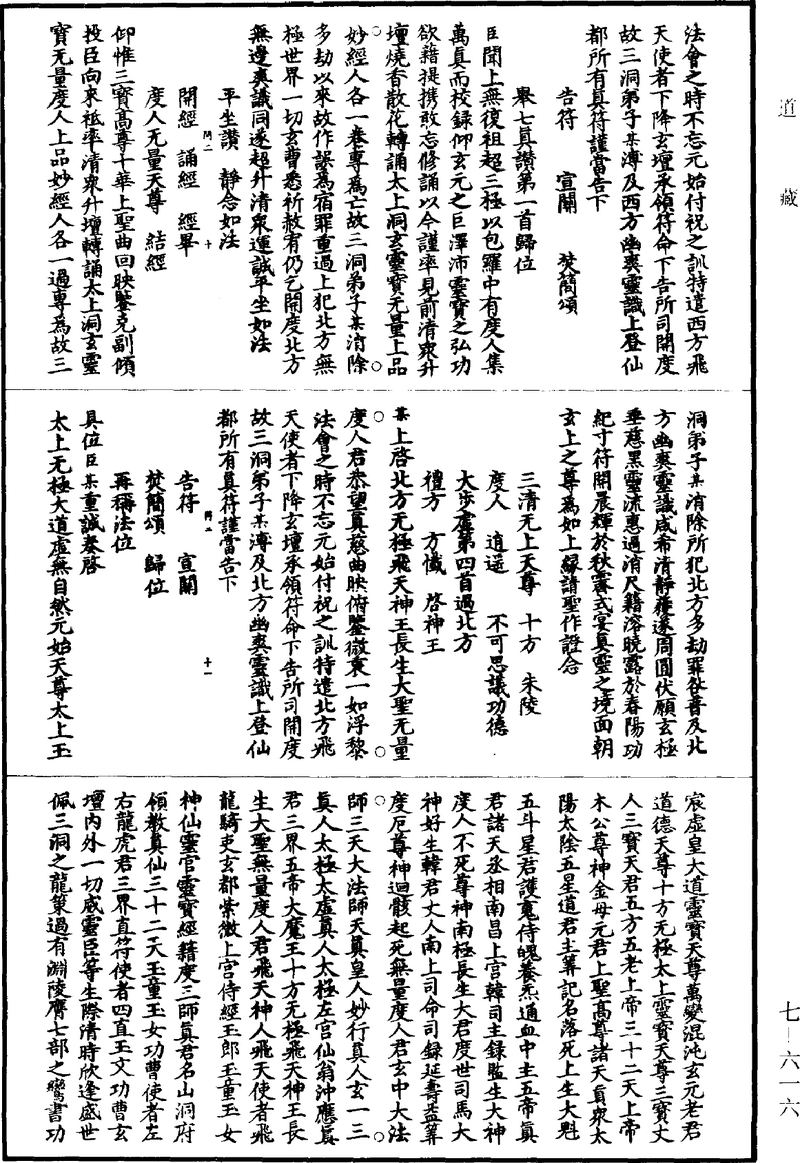 道藏
七-六一六
法會之時不忘元始付祝之訓特遣西方飛
天使者下降玄壇承領符命下告所司開度
故三洞弟子某溥及西方幽爽靈識上登仙
都所有真符謹當告下
告符　宣關　焚簡頌
舉七真讚第一首歸位
臣聞上無復祖超三極以包羅中有度人集
萬真而校錄仰玄元之巨澤沛靈寶之弘功
欲藉提携敢忘修誦以今謹率見前清衆升
壇燒香散花轉誦太上洞玄靈寶无量上品
妙經人各一卷專為亡故三洞弟子某消除
多劫以來故作誤為宿罪重過上犯北方無
極世界一切玄曹悉祈赦宥仍乞開度北方
無邊爽識同遂超升清衆運誠平坐如法
平坐讚　靜念如法
開經　誦經　經畢
度人无量天尊　結經
仰惟三寶高尊十華上聖曲回映鑒克副傾
投臣向來祗率清衆升壇轉誦太上洞玄靈
寶无量度人上品妙經人各一過專為故三
洞弟子某消除所犯北方多劫罪咎普及北
方幽爽靈識咸希清靜獲遂周圓伏願玄極
垂慈黑靈流惠過消尺籍溶晓露於春陽功
紀寸符開晨輝於秋霽式宴真靈之境面朝
玄上之尊為如上緣請聖作證念
三清无上天尊　十方　朱陵
度人　逍遥　不可思議功德
大步虛第四首過北方
禮方　方懺　啓神王
某上啓北方无極飛天神王長生大聖无量
度人君恭望真慈曲映俯鑒微衷一如浮黎
法會之時不忘元始付祝之訓特遣北方飛
天使者下降玄壇承領符命下告所司開度
故三洞弟子某溥及北方幽爽靈識上登仙
都所有真符謹當告下
告符　宣關
焚簡頌　歸位
再稱法位
具位臣某重誠奏啓
太上无極大道虛無自然元始天尊太上玉
宸虛皇大道靈寶天尊萬變混沌玄元老君
道德天尊十方无極太上靈寶天尊三寶丈
人三寶天君五方五老上帝三十二天上帝
木公尊神金母元君上聖高尊諸天真衆太
陽太陰五星道君主筭記名落死上生大魁
五斗星君護䰟侍魄養炁通血中主五帝真
君諸天丞相南昌上宮韓司主錄監生大神
度人不死尊神南極長生大君度世司馬大
神好生韓君丈人南上司命司錄延壽益筭
度厄尊神迴骸起死無量度人君玄中大法
師三天大法師天真皇人妙行真人玄一三
真人太極太虛真人太極左宮仙翁沖應真
君三界五帝大魔王十方无極飛天神王長
生大聖無量度人君飛天神人飛天使者飛
龍騎吏玄都紫微上宮侍經玉郎玉童玉女
神仙靈官靈寶經籍度三師真君名山洞府
領教真仙三十二天玉童玉女功曹使者左
右龍虎君三界直符使者四直玉文功曹玄
壇内外一切威靈臣等生際清時欣逢盛世
佩三洞之龍策過有淵陵膺七部之鸞書功